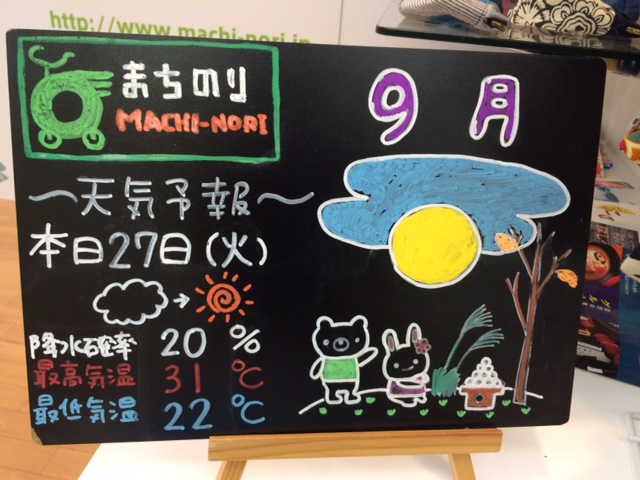 http://www.machi-nori.jp
まちのり
MACHI-NORI
9月
～天気予報～
本日27日(火)
降水確率 20 %
最高気温 31 ℃
最低気温 22 ℃